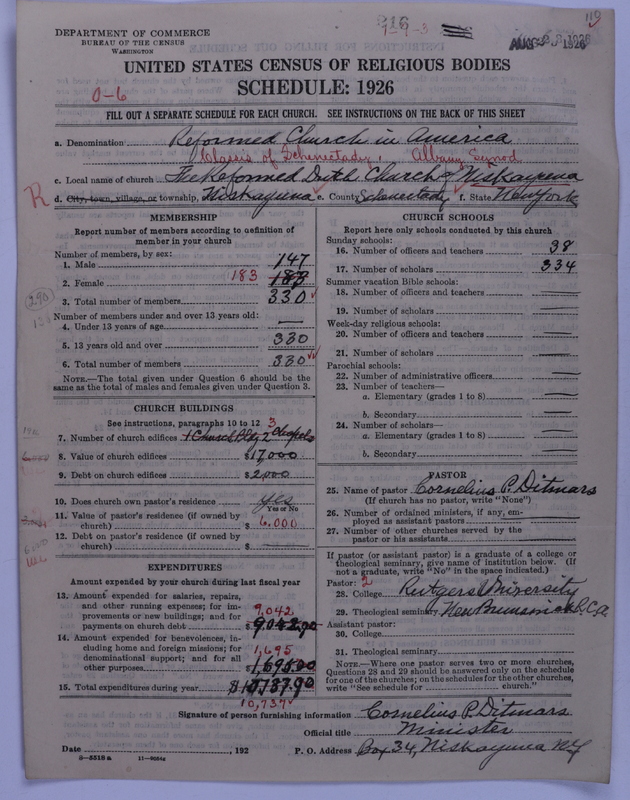 DEPARTMENT OF COMMERCE
BUREAU OF THE CENSUS
WASHINGTON
216
7-9-3
110
AUG 28 1926
UNITED STATES CENSUS OF RELIGIOUS BODIES
SCHEDULE: 1926
0-6
FILL OUT A SEPARATE SCHEDULE FOR EACH CHURCH. SEE INSTRUCTIONS ON THE BACK OF THIS SHEET
a. Denomination Reformed Church in America
Classis of Schenectady, Albany Synod
c. Local name of church The Reformed Dutch Church of Niskayuna
R
d. City, town, village, or township, Niskayuna e. County Schenectady f. State New York
MEMBERSHIP
Report number of members according to definition of member in your church
Number of members, by sex:
1. Male 147
2. Female 183 183
3. Total number of members 330
Number of members under and over 13 years old:
4. Under 13 years of age —
5. 13 years old and over 330
6. Total number of members 330
NOTE.—The total given under Question 6 should be the same as the total of males and females given under Question 3.
CHURCH BUILDINGS
See instructions, paragraphs 10 to 12
3
7. Number of church edifices 1 Church Bldg 2 Chapels
8. Value of church edifices $17,000
9. Debt on church edifices $2,000
10. Does church own pastor's residence Yes
Yes or No
11. Value of pastor's residence (if owned by church) $ 6.000
12. Debt on pastor's residence (if owned by church) $ —
EXPENDITURES
Amount expended by your church during last fiscal year
13. Amount expended for salaries, repairs, and other running expenses; for improvements or new buildings; and for payments on church debt 9,042 $9042.90
14. Amount expended for benevolences, including home and foreign missions; for denominational support; and for all other purposes 1,695 $1695.00
15. Total expenditures during year $10,737.90
10,737
CHURCH SCHOOLS
Report here only schools conducted by this church
Sunday schools:
16. Number of officers and teachers 38
17. Number of scholars 334
Summer vacation Bible schools:
18. Number of officers and teachers —
19. Number of scholars —
Week-day religious schools:
20. Number of officers and teachers —
21. Number of scholars —
Parochial schools:
22. Number of administrative officers —
23. Number of teachers—
a. Elementary (grades 1 to 8) —
b. Secondary —
24. Number of scholars—
a. Elementary (grades 1 to 8) —
b. Secondary —
PASTOR
25. Name of pastor Cornelius P. Ditmars
(If church has no pastor, write "None")
26. Number of ordained ministers, if any, employed as assistant pastors —
27. Number of other churches served by the pastor or his assistants —
If pastor (or assistant pastor) is a graduate of a college or theological seminary, give name of institution below. (If not a graduate, write "No" in the space indicated.)
Pastor: 2
28. College Rutgers University
29. Theological seminary New Brunswick R.C.A.
Assistant pastor:
30. College
31. Theological seminary
NOTE.—Where one pastor serves two or more churches, Questions 28 and 29 should be answered only on the schedule for one of the churches; on the schedules for the other churches, write "See schedule for church."
Signature of person furnishing information Cornelius P. Ditmars
Official title Minister
Date , 192
P. O. Address Box 34, Niskayuna N.Y.
8-5518a 11-9564